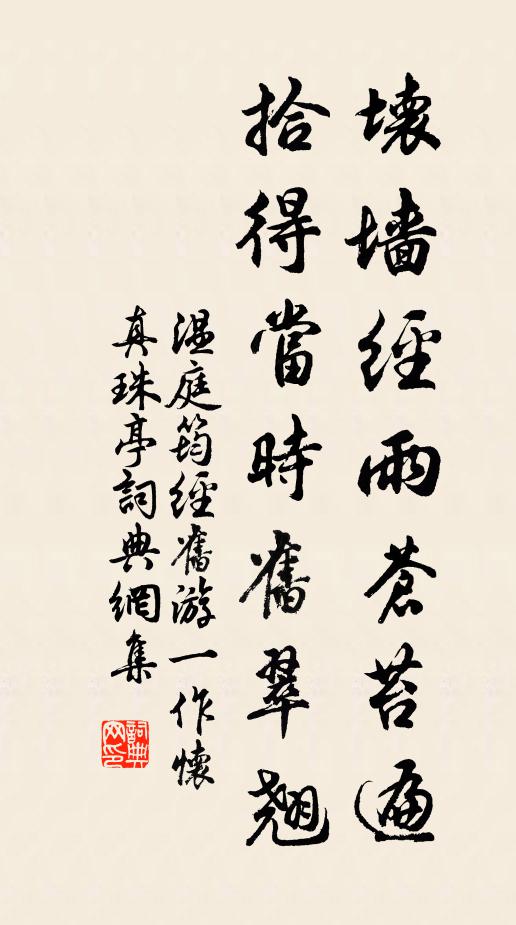 壞墻經雨蒼苔遍
拾得當時舊翠翹
温庭筠經舊游一作懷
真珠亭詞典網集
詞典
网印